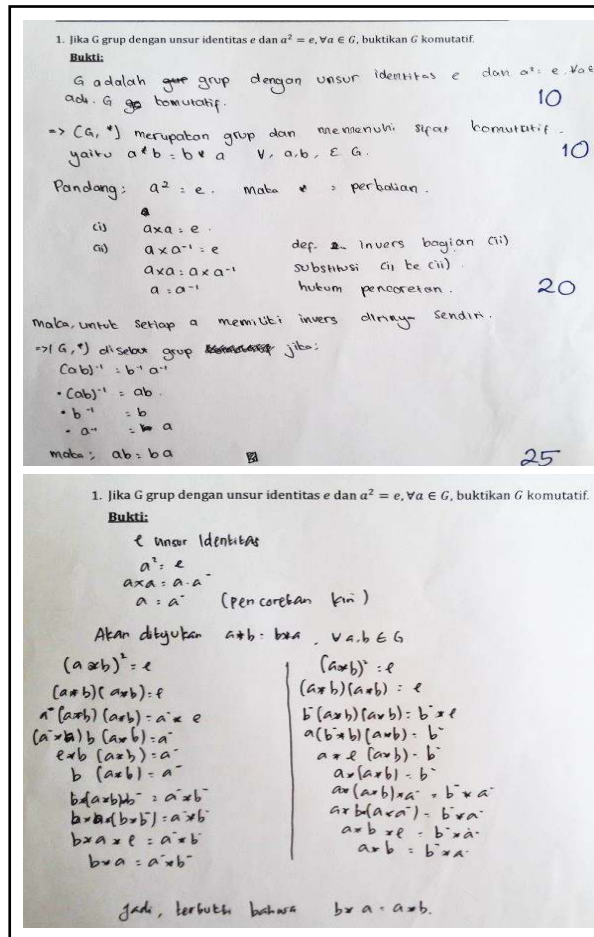 1. Jika G grup dengan unsur identitas e dan a² = e, ∀a ∈ G, buktikan G komutatif.
Bukti:
G adalah grup dengan unsur identitas e dan a² = e. ∀a ∈
adb. G komutatif.
10
=> (G, *) merupakan grup dan memenuhi sifat komutatif.
yaitu a * b = b * a ∀, a,b, ∈ G.
10
Pandang: a² = e. maka * = perkalian.
(i) a×a = e.
(ii) a × a⁻¹ = e def. invers bagian (ii)
a×a = a × a⁻¹ substitusi (i) ke (ii)
a = a⁻¹ hukum pencoretan.
20
maka, untuk setiap a memiliki invers dirinya sendiri.
=> (G, *) disebut grup jika:
(ab)⁻¹ = b⁻¹ a⁻¹
• (ab)⁻¹ = ab.
• b⁻¹ = b
• a⁻¹ = a
maka: ab = ba
25
1. Jika G grup dengan unsur identitas e dan a² = e, ∀a ∈ G, buktikan G komutatif.
Bukti:
e unsur Identitas
a² = e
a×a = a·a⁻
a = a⁻ (pencoretan kiri)
Akan ditujukan a*b = b*a, ∀a,b ∈ G
(a*b)² = e
(a*b)(a*b) = e
a⁻(a*b)(a*b) = a⁻* e
(a⁻*a) b (a*b) = a⁻
e*b (a*b) = a⁻
b (a*b) = a⁻
b*(a*b)b⁻ = a⁻*b⁻
b*a*(b*b⁻) = a⁻*b⁻
b*a*e = a⁻*b⁻
b*a = a⁻*b⁻
(a*b)² = e
(a*b)(a*b) = e
b⁻(a*b)(a*b) = b⁻*e
a(b⁻*b)(a*b) = b⁻
a*e (a*b) = b⁻
a*(a*b) = b⁻
a*(a*b)*a⁻ = b⁻*a⁻
a*b(a*a⁻) = b⁻*a⁻
a*b*e = b⁻*a⁻
a*b = b⁻*a⁻
Jadi, terbukti bahwa b*a = a*b.